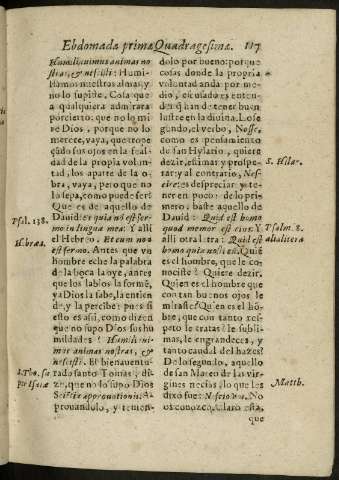 Ebdomada primæ Quadragesimæ. 117
Humiliauimus animas no
stras, & nescisti: Humi-
llamos nuestras almas, y
no lo supiste. Cosa que
a qualquiera admirara
por cierto: que no lo mi
re Dios, porque no lo
merece, vaya, que trope
çado sus ojos en la feal-
dad de la propia volun-
tad, los aparte de la o-
bra, vaya, pero que no
lo sepa, como puede ser?
Que es de aquello de
Psal. 138.
Dauid: & quia non est ser-
mo in lingua mea: Y alli
Hebræa.
el Hebreo: Etiam non
est sermo. Antes que vn
hombre eche la palabra
de la boca al oye, antes
que los labios la formē,
ya Dios la sabe, la entiē
de, y la percibe: pues si
esto es assi, como dizen
que no supo Dios sus hu
mildades? Humiliaui-
mus animas nostras, &
nescisti. El bienauentu-
S. Tho. su
per Isaiæ
rado santo Tomas, di-
ze, que no lo supo Dios
Scientia approuationis: A-
prouandolo, y tenien-
dolo por bueno: porque
cosas donde la propria
voluntad anda por me-
dio, escusadas son, enten-
der q̃ han de tener buen
lustre en la diuina. Lo se
gundo, el verbo, Nosse,
como es pensamiento
S. Hilar.
de san Hylario, quiere
dezir, estimar y prospe-
rar: y al contrario, Nes-
cire: es despreciar y te-
ner en poco: de lo pri-
mero; baste aquello de
Dauid: Quid est homo
Psalm. 8.
quod memor est eius. Y
alli otra letra: Quid est
altalitera
homo quia nosti eũ. Quiē
es el hombre, que le co-
nociste? Quiere dezir,
Quien es el hombre que
con tan buenos ojos le
miraste? Quien es el hō-
bre, que con tanto res-
peto le tratas? le subli-
mas, le engrandeces, y
tanto caudal del hazes?
De lo segundo, aquello
de san Mateo de las vir-
Matth.
gines necias, lo que les
dixo fue: Nescio vos. No
os conozco. Claro está,
que